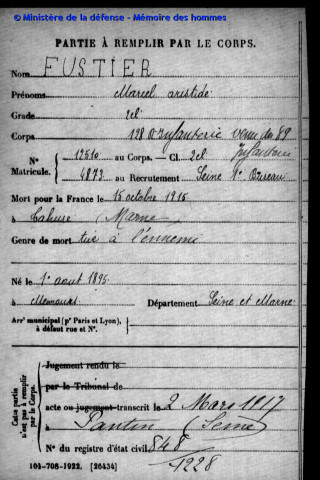 © Ministère de la défense - Mémoire des hommes
PARTIE À REMPLIR PAR LE CORPS.
Nom FUSTIER
Prénoms Marcel aristide
Grade 2cl
Corps 128 d'Infanterie venu du 89
Infanterie
N° 12510 au Corps. — Cl. 2cl
Matricule. 4873 au Recrutement Seine 1er Bureau
Mort pour la France le 15 octobre 1915
à (Marne)
Genre de mort tué à l'ennemi
Né le 1er aout 1895
à Nemours Département Seine et Marne
Arr' municipal (p' Paris et Lyon),
à défaut rue et N°.
Cette partie
n'est pas à remplir
par le Corps.
Jugement rendu le
par le Tribunal de
acte ou jugement transcrit le 2 Mars 1917
à Pantin (Seine)
N° du registre d'état civil 848
1228
101-708-1922. [26434]